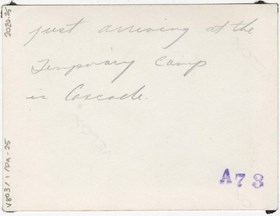 just arriving at the
Temporary Camp
in Cascade.
A73
2020-25
V803/1/DA-25